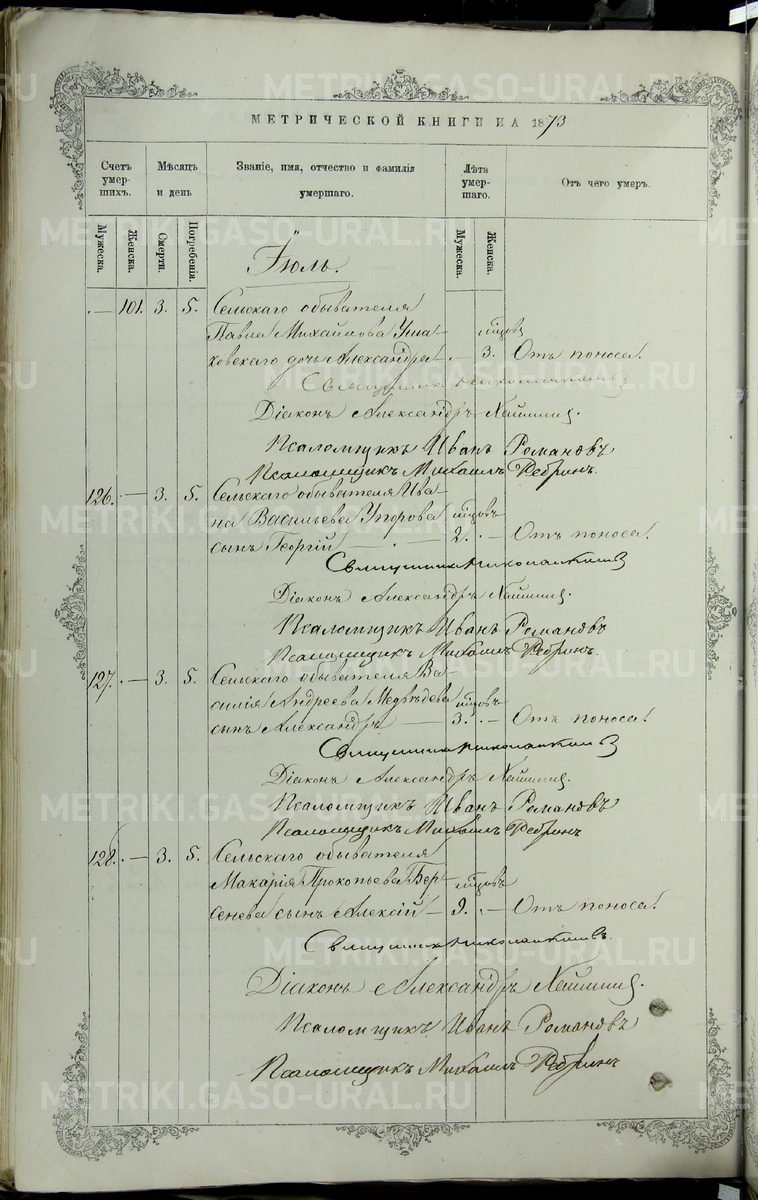 МЕТРИЧЕСКОЙ КНИГИ НА 1873
Счетъ умер-шихъ.
Мѣсяцъ и день
Званіе, имя, отчество и фамилія умершаго.
Лѣта умер-шаго.
Отъ чего умеръ.
Мужеска. Женска. Смерти. Погребенія. Мужеска. Женска.
Іюль.
— 101. 3. 5. Сельскаго обывателя
Павла Михайлова Уша-
ковскаго дочь Александра — 3. Отъ поноса.
Священникъ
Діаконъ Александръ
Псаломщикъ Иванъ Романовъ
Псаломщикъ Михаилъ Ребринъ.
126. — 3. 5. Сельскаго обывателя Ива-
на Васильева Угорова
сынъ Георгій — 2. — Отъ поноса.
Священникъ
Діаконъ Александръ
Псаломщикъ Иванъ Романовъ
Псаломщикъ Михаилъ Ребринъ.
127. — 3. 5. Сельскаго обывателя Ва-
силія Андреева Медвѣдева
сынъ Александръ — 3. — Отъ поноса.
Священникъ
Діаконъ Александръ
Псаломщикъ Иванъ Романовъ
Псаломщикъ Михаилъ Ребринъ
128. — 3. 5. Сельскаго обывателя
Макарія Прокопьева Бер-
сенева сынъ Алексій — 9. — Отъ поноса.
Священникъ
Діаконъ Александръ
Псаломщикъ Иванъ Романовъ
Псаломщикъ Михаилъ Ребринъ
METRIKI.GASO-URAL.RU